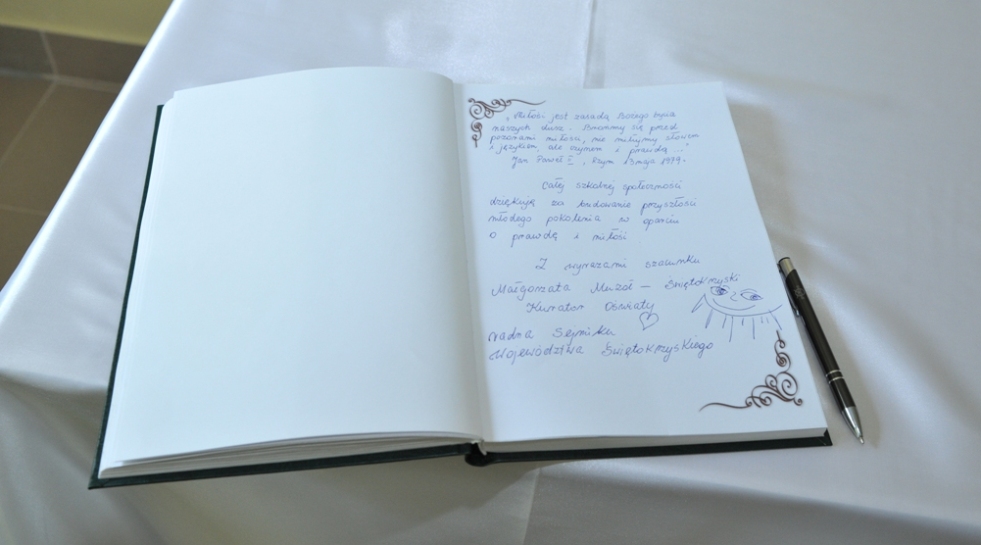 "Miłość jest zasadą Bożego życia
naszych dusz. Brońmy się przed
pozorami miłości, nie miłujmy słowem
i językiem, ale czynem i prawdą ..."
Jan Paweł II, Rzym 13 maja 1979.
Całej szkolnej społeczności
dziękuję za budowanie przyszłości
młodego pokolenia w oparciu
o prawdę i miłość
Z wyrazami szacunku
Małgorzata Muzoł – Świętokrzyski
Kurator Oświaty
radna Sejmiku
Województwa Świętokrzyskiego